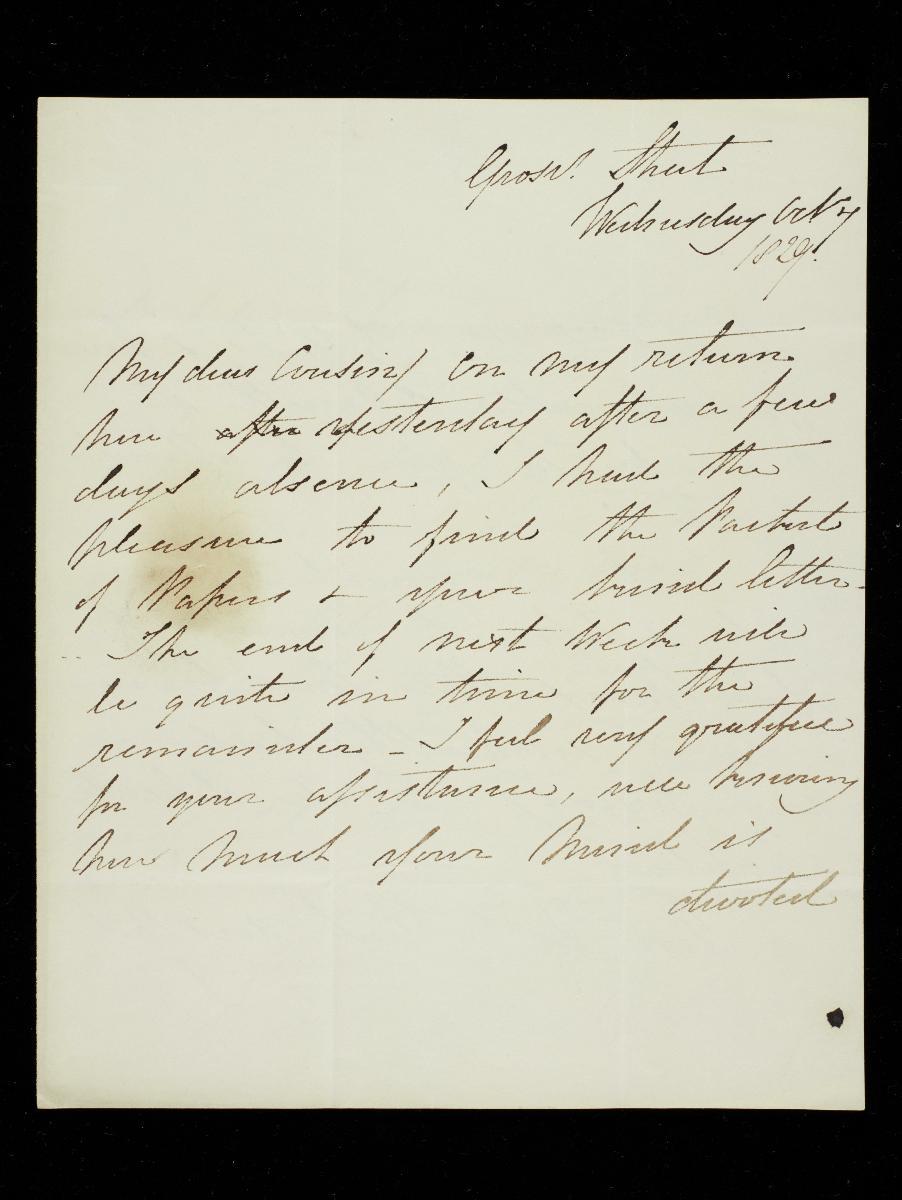 Grosv. Street
Wednesday Oct 7
1829.
My dear Cousin/ on my return
here after yesterday after a few
days absence, I had the
pleasure to find the Packet
of Papers & your kind letter -
The end of next Week will
be quite in time for the
remainder - I feel very grateful
for your assistance, well knowing
how much your Mind is
devoted